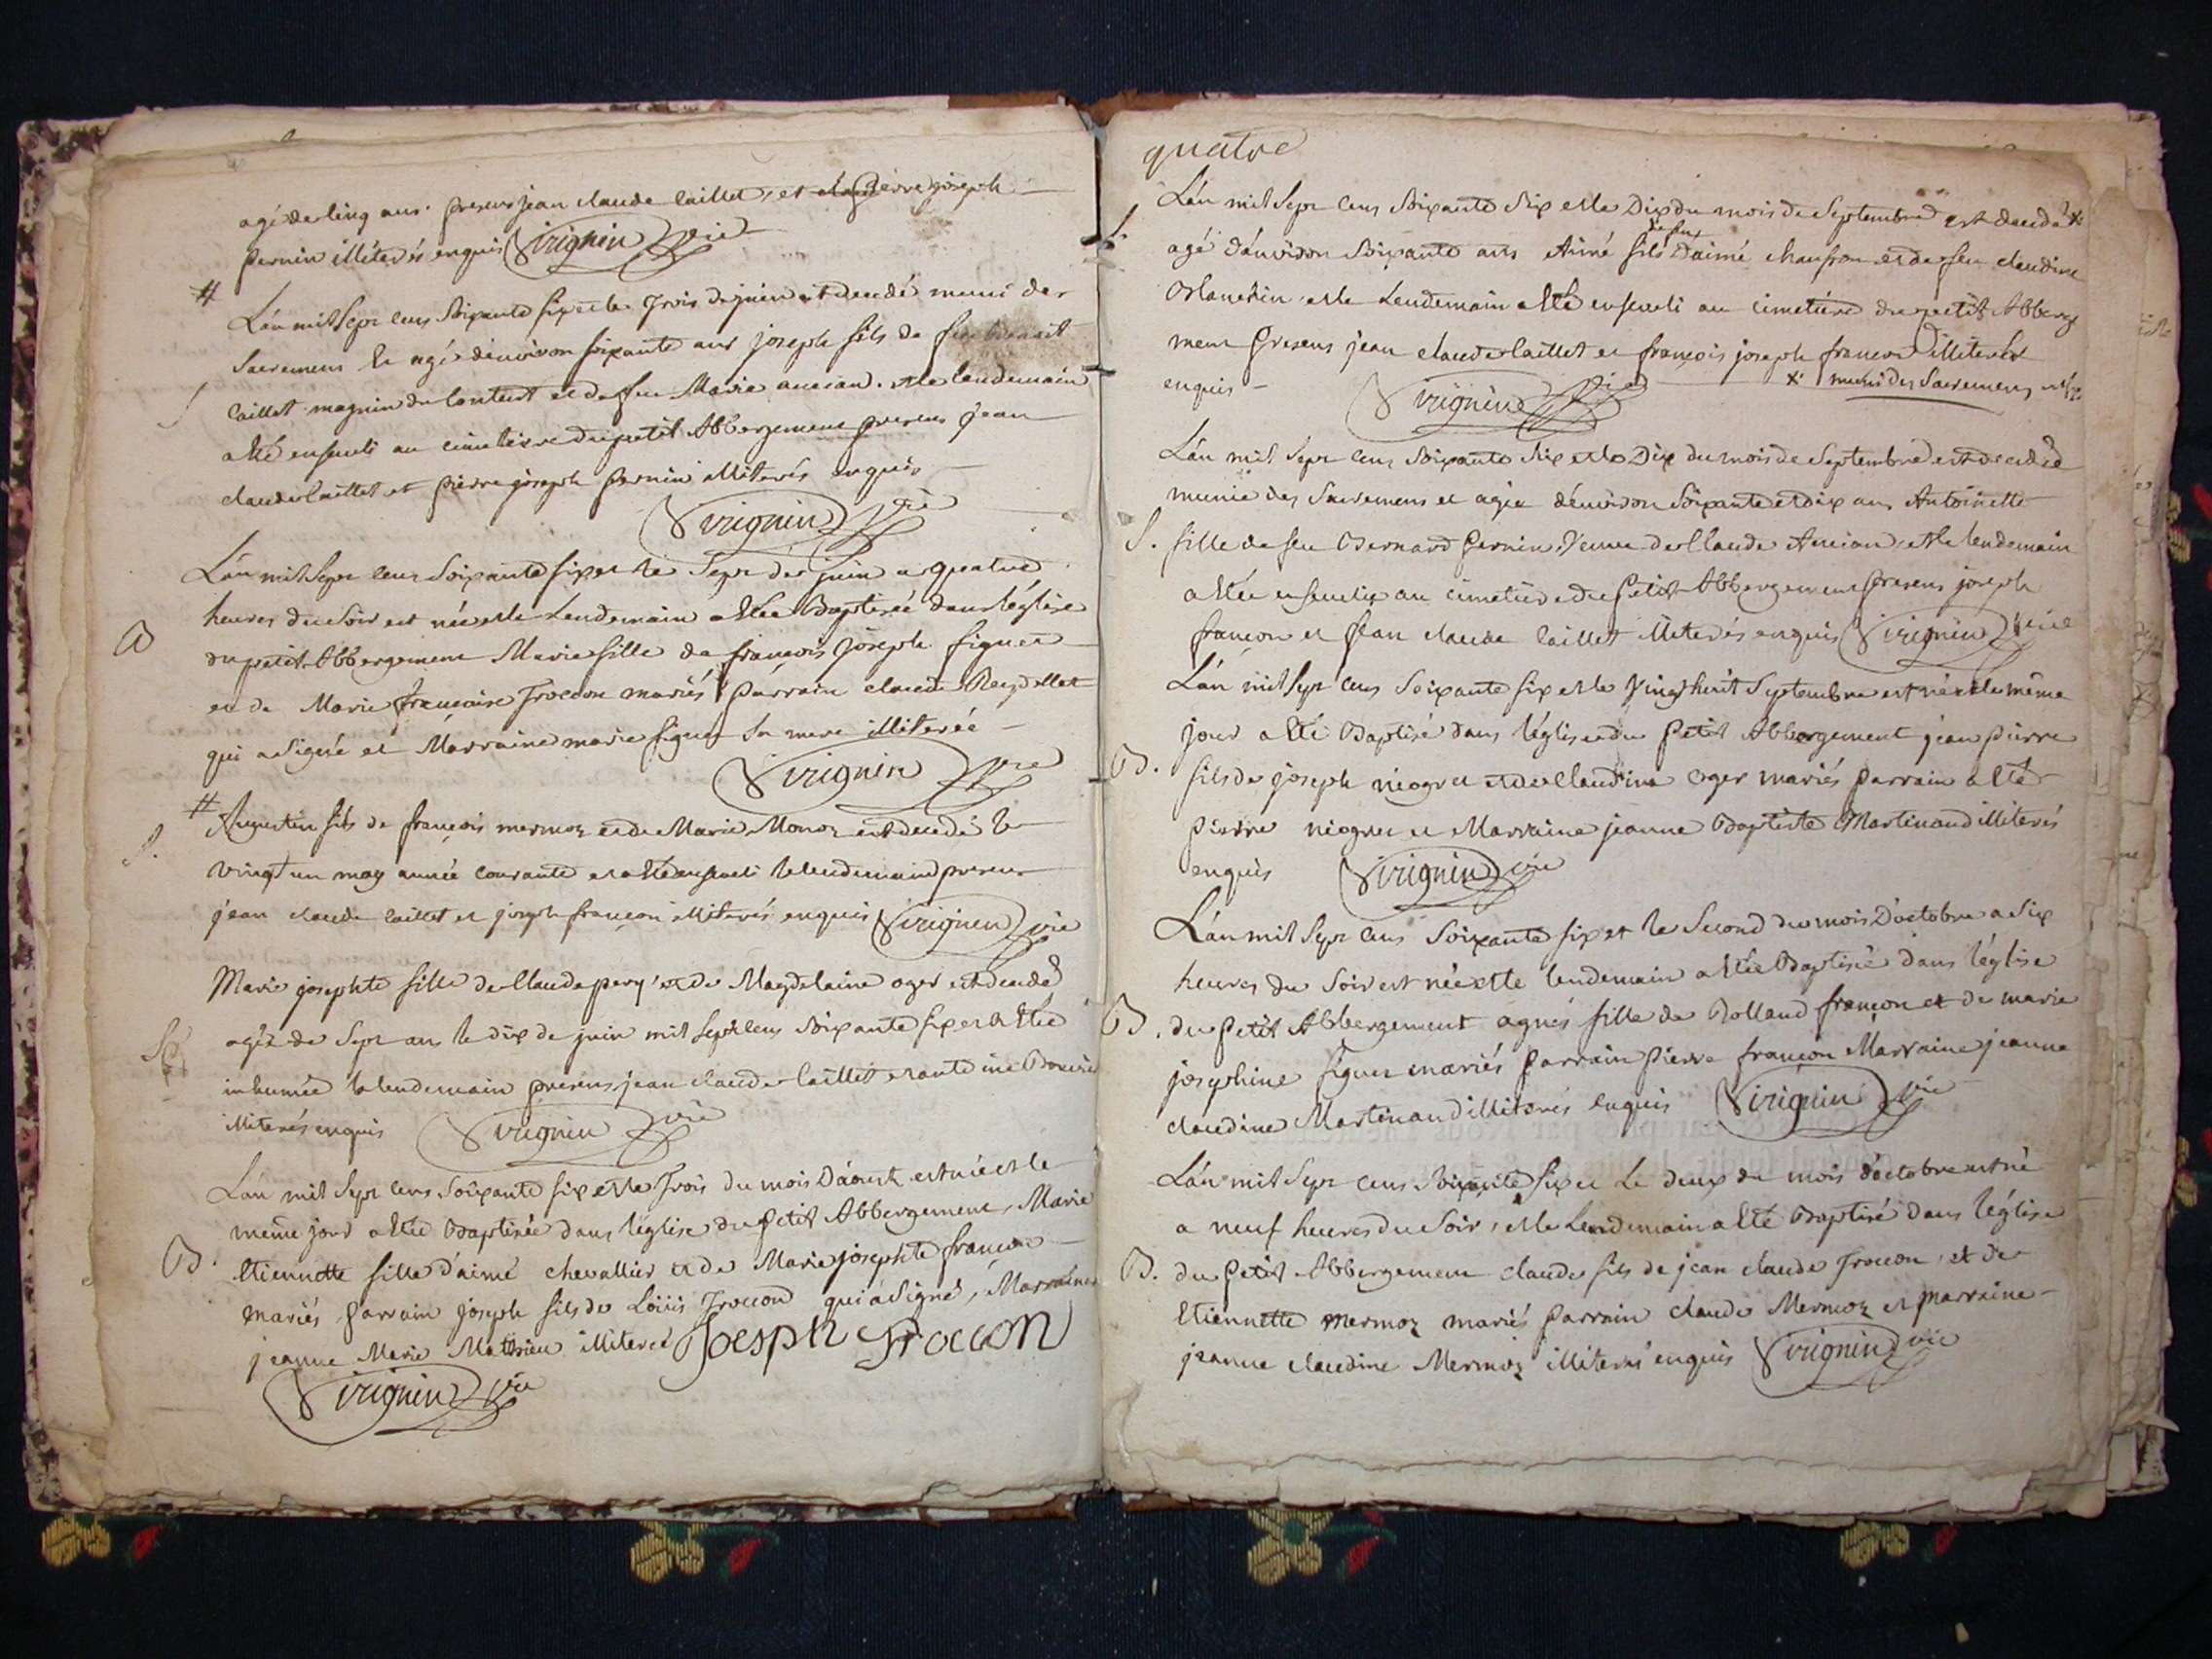 agé de cinq ans. presens jean claude caillet, et pierre joseph
pernin illiterés enquis Virignin vic
#
L'an mil sept cens soixante six et le trois de juin est decedé muni des
sacremens et agé d'environ soixante ans joseph fils de feu benoit
S
caillet magnin du content et de feu Marie ancian. et le lendemain
a été enseveli au cimetierre du petit Abbergement presens jean
claude caillet et pierre joseph pernin illiterés enquis
Virignin vic
L'an mil sept cens soixante six et le sept de juin a quatre
heures du soir est née et le lendemain a été Baptisée dans l'église
B
du petit Abbergement Marie fille de françois joseph figuet
et de Marie françoise Troccon mariés parrain claude Reydellet
qui a signé et Marraine marie figuet sa mere illiterée
Virignin vic
#
Augustin fils de françois mermoz et de Marie Monoz est decedé le
S.
vingt un may année courante et a été enseveli le lendemain presens
jean claude caillet et joseph françon illiterés enquis Virignin vic
Marie josephte fille de claude pery et de Magdelaine oger est decedé
agée de sept ans le dix de juin mil sept cens soixante six et a été
inhumée le lendemain presens jean claude caillet et antoine
illiterés enquis Virignin vic
L'an mil sept cens soixante six et le trois du mois d'aoust est née et le
même jour a été Baptisée dans l'église du petit Abbergement, Marie
B.
Etiennette fille d'aimé chevallier et de Marie josephte françon
mariés parrain joseph fils de Loüis Troccon qui a signé, Marraine
jeanne Marie Mathieu illiterée Joesph Troccon
Virignin vic
quatre
L'an mil sept cens soixante six et le Dix du mois de septembre est decedé x
S.
de feu
agé d'environ soixante ans Aimé fils D'aimé chanfron et de feu claudine
et le Lendemain a été enseveli au cimetière du petit Abberge
ment presens jean claude caillet et françois joseph françon illiterés
enquis - Virignin vic x munis des sacremens
L'an mil sept cens soixante six et le Dix du mois de septembre est decedée
munie des sacremens et agée d'environ soixante et dix ans Antoinette
S. fille de feu Bernard pernin, veuve de claude Ancian, et le lendemain
a été ensevelie au cimetière du petit Abbergement presens joseph
françon et jean claude caillet illiterés enquis Virignin vic
L'an mil sept cens soixante six et le vingt huit septembre est né et le même
jour a été Baptisé dans l'église du petit Abbergement jean pierre
B. fils de joseph niogret et de claudine oger mariés parrain a été
pierre niogret et Marraine jeanne Baptiste Martinand illiterés
enquis Virignin vic
L'an mil sept cens soixante six et le second du mois D'octobre a six
heures du soir est née et le lendemain a été Baptisée dans l'église
B. du petit Abbergement agnés fille de Rolland françon et de marie
josephine figuet mariés parrain pierre françon Marraine jeanne
claudine Martinand illiterés enquis Virignin vic
L'an mil sept cens soixante six et Le deux du mois d'octobre est né
a neuf heures du soir, et le Lendemain a été Baptisé dans l'église
B. du petit Abbergement claude fils de jean claude Troccon, et de
Etiennette mermoz mariés parrain claude Mermoz et marraine
jeanne claudine Mermoz illiterés enquis Virignin vic